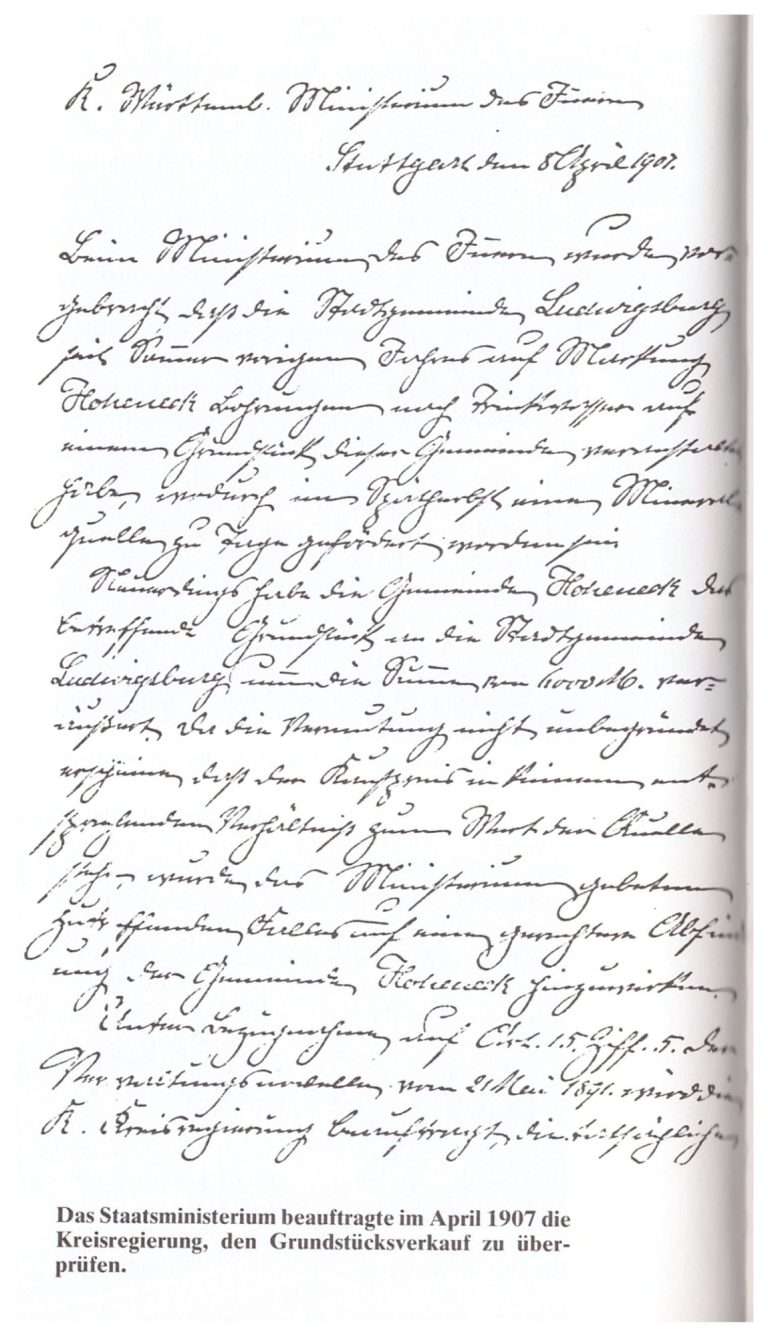 K. Württemb. Ministerium des Innern
Stuttgart den 8 April 1907.
Beim Ministerium des Innern wurde vor-
gebracht, daß die Stadtgemeinde Ludwigsburg
seit Sommer vorigen Jahres auf Markung
Hoheneck Bohrungen nach Trinkwasser auf
einem Grundstück dieser Gemeinde veranstaltet
habe, wodurch im Spätherbst eine Mineral-
quelle zu Tage gefördert worden sei.
Neuerdings habe die Gemeinde Hoheneck das
betreffende Grundstück an die Stadtgemeinde
Ludwigsburg um die Summe von 4000 M. ver-
äußert. Da die Vermutung nicht unbegründet
erscheine, daß der Kaufpreis in keinem ent-
sprechenden Verhältniß zum Wert der Quelle
stehe, wurde das Ministerium gebeten
zutreffenden Falles auf eine gerechtere Abfin
ung der Gemeinde Hoheneck hinzuwirken.
Unter Bezugnahme auf Art. 15. Ziff. 5. der
Verwaltungsnovelle vom 21 Mai 1891. wird die
K. Kreisregierung beauftragt, die tatsächlichen
Das Staatsministerium beauftragte im April 1907 die
Kreisregierung, den Grundstücksverkauf zu über-
prüfen.